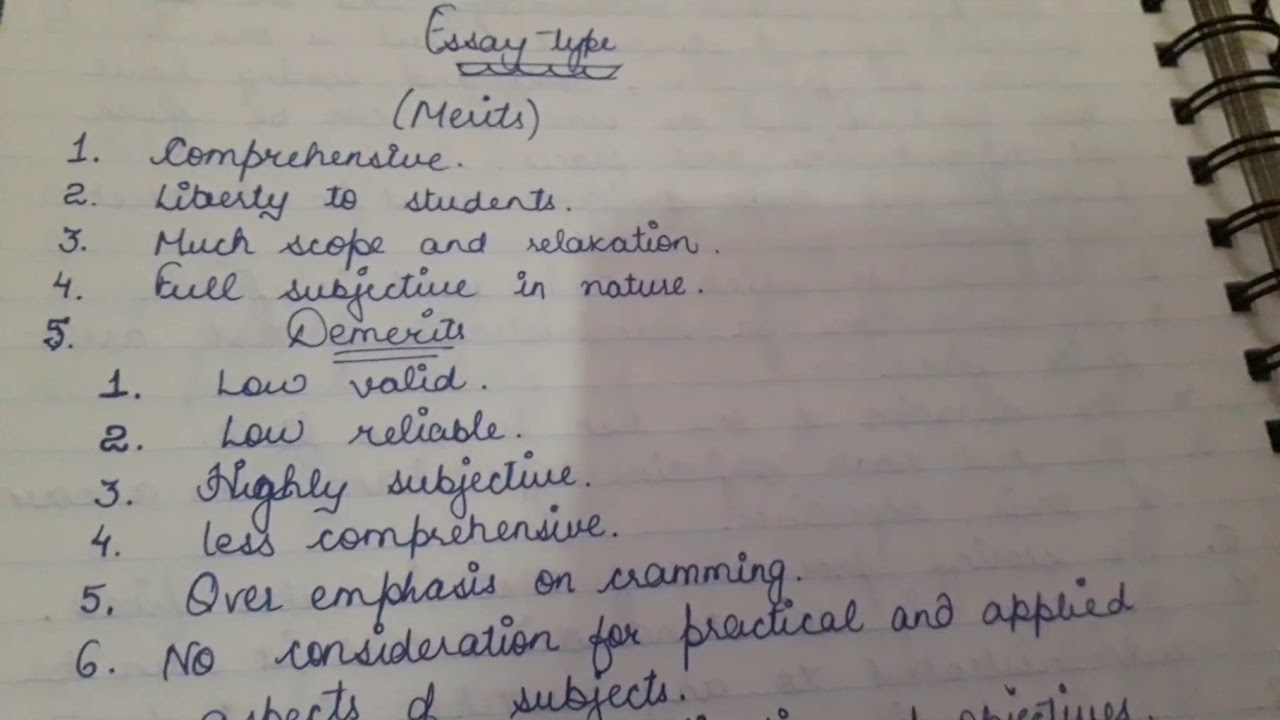 Essay-type
(Merits)
1. Comprehensive.
2. Liberty to students.
3. Much scope and relaxation.
4. Full subjective in nature.
5. Demerits
1. Low valid.
2. Low reliable.
3. Highly subjective.
4. less comprehensive.
5. Over emphasis on cramming.
6. No consideration for practical and applied
aspects of subjects.
objectives.